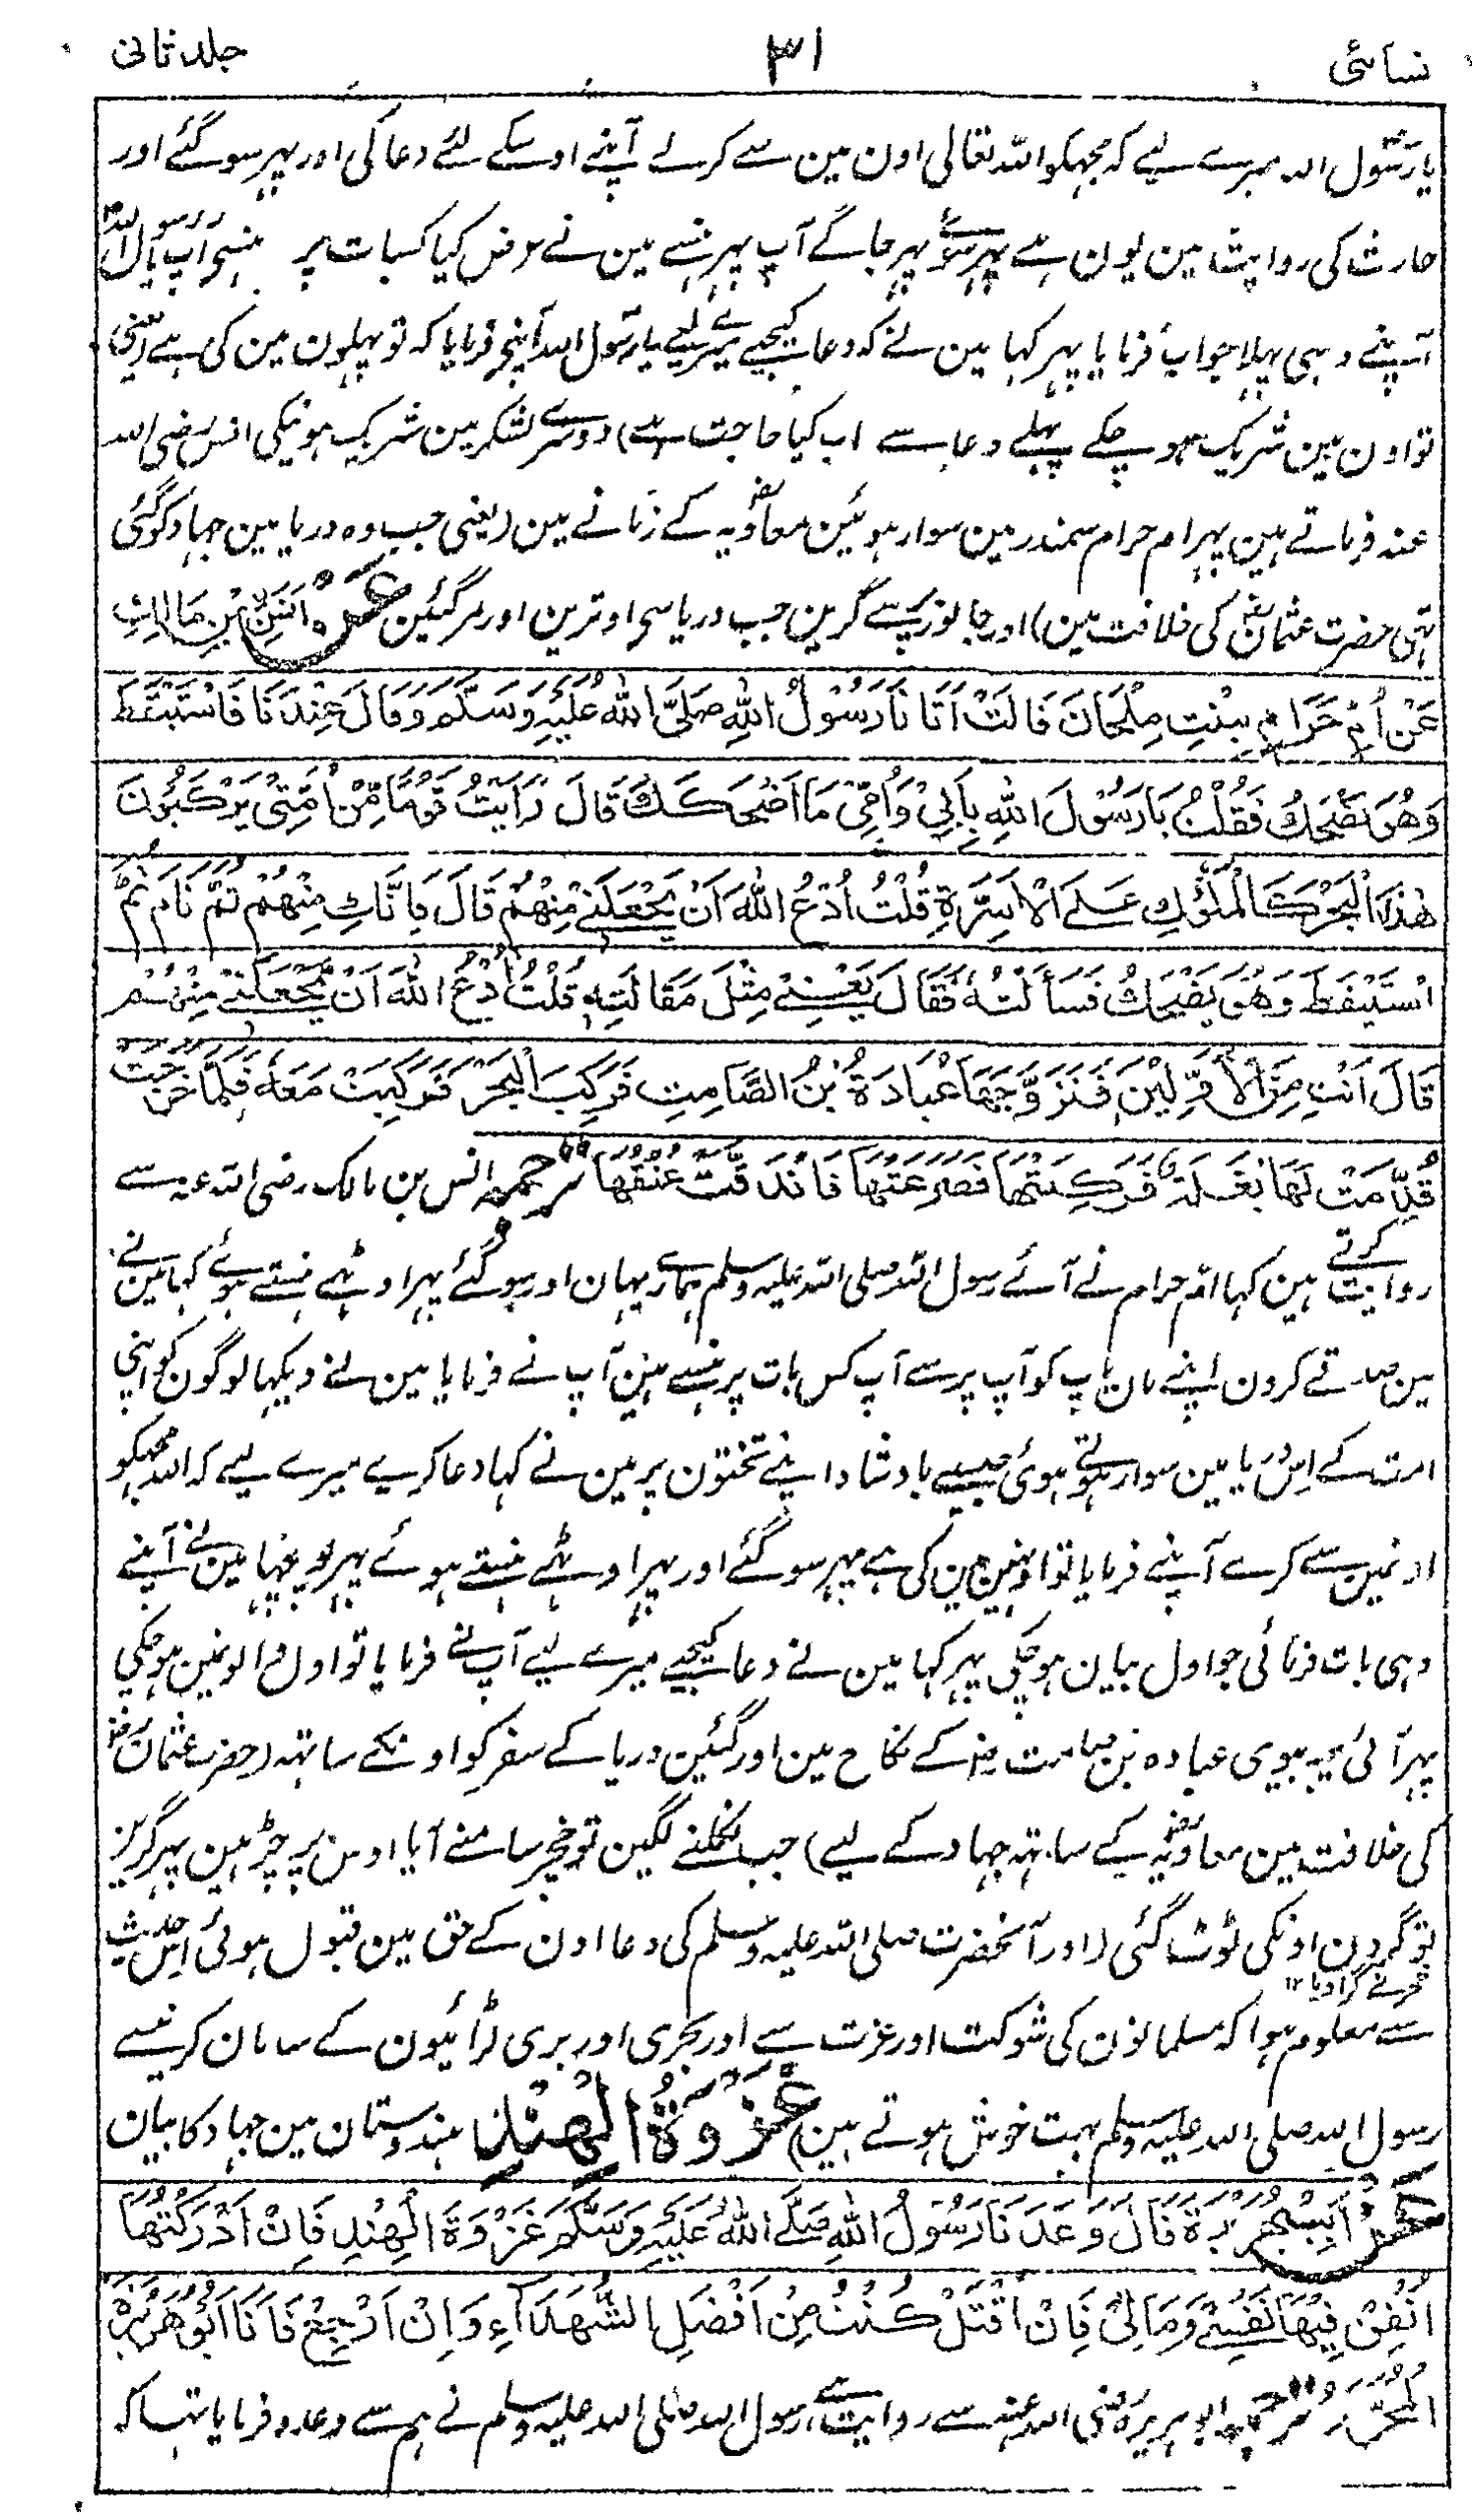 نسائی ۳۱ جلد ثانی
یا رسول اللہ میرے لیے کہ مجہکو اللہ تعالی اون مین سے کرلے آپنے اوسکے لئے دعا کی اور پہر سو گئے اور
حارث کی روایت مین یون ہے پہر سوئے پہر جاگے آپ پہر ہنسے مین نے عرض کیا کسبات پر ہنسے آپ یا رسول اللہ
آپنے وہی پہلا جواب فرمایا پہر کہا مین نے کہ دعا کیجیے میرے لیے یا رسول اللہ آپنے فرمایا کہ تو پہلون مین کی ہے (یعنی
تو اون مین شریک ہو چکے پہلے دعا سے اب کیا حاجت ہے) دوسرے لشکر مین شریک ہونیکی انس رضی اللہ
عنہ فرماتے ہین پہر ام حرام سمندر مین سوار ہوئین معاویہ کے زمانے مین (یعنی جب وہ دریا مین جہاد کو گئی
تہی حضرت عثمان کی خلافت مین) اور جانور پر سے گرین جب دریا سے اوترین اور مر گئین عَنْ اَنَسِ بْنِ مَالِكٍ
عَنْ اُمِّ حَرَامٍ بِنْتِ مِلْحَانَ قَالَتْ اَتَانَا رَسُوْلُ اللّٰهِ صَلَّى اللّٰهُ عَلَيْهِ وَسَلَّمَ وَقَالَ عِنْدَنَا فَاسْتَيْقَظَ
وَهُوَ يَضْحَكُ فَقُلْتُ يَا رَسُوْلَ اللّٰهِ بِاَبِيْ وَاُمِّيْ مَا اَضْحَكَكَ قَالَ رَاَيْتُ قَوْمًا مِّنْ اُمَّتِيْ يَرْكَبُوْنَ
هٰذَا الْبَحْرَ كَالْمُلُوْكِ عَلَى الْاَسِرَّةِ قُلْتُ اُدْعُ اللّٰهَ اَنْ يَّجْعَلَنِيْ مِنْهُمْ قَالَ فَاِنَّكِ مِنْهُمْ ثُمَّ نَامَ ثُمَّ
اسْتَيْقَظَ وَهُوَ يَضْحَكُ فَسَاَلْتُهُ فَقَالَ يَعْنِيْ مِثْلَ مَقَالَتِهِ قُلْتُ اُدْعُ اللّٰهَ اَنْ يَّجْعَلَنِيْ مِنْهُمْ
قَالَ اَنْتِ مِنَ الْاَوَّلِيْنَ فَتَزَوَّجَهَا عُبَادَةُ بْنُ الصَّامِتِ فَرَكِبَ الْبَحْرَ فَرَكِبَتْ مَعَهُ فَلَمَّا خَرَجَتْ
قُدِّمَتْ لَهَا بَغْلَةٌ فَرَكِبَتْهَا فَصَرَعَتْهَا فَانْدَقَّتْ عُنُقُهَا ترجمہ انس بن مالک رضی اللہ عنہ سے
روایت کرتے ہین کہا ام حرام نے آئے رسول اللہ صلی اللہ علیہ وسلم ہمارے یہان اور سو گئے پہر اوٹہے ہنستے ہوئے کہا مین نے
مین صدقے کرون اپنے مان باپ کو آپ پر سے آپ کس بات پر ہنسے ہین آپ نے فرمایا مین نے دیکہا لوگون کو اپنی
امت کے اِس دریا مین سوار ہوتے ہوئی جیسے بادشاہ اپنے تختون پر مین نے کہا دعا کریے میرے لیے کہ اللہ مجہکو
اونمین سے کرے آپنے فرمایا تو اونہین مین کی ہے پہر سو گئے اور پہر اوٹہے ہنستے ہوئے پہر پوچہا مین نے آپنے
وہی بات فرمائی جو اول بیان ہو چکی پہر کہا مین نے دعا کیجیے میرے لیے آپ نے فرمایا تو اول والونمین ہو چکی
پہر آئی یہ بیوی عبادہ بن صامت کے نکاح مین اور گئین دریا کے سفر کو اونکے ساتہ (حضرت عثمان
کی خلافت مین معاویہ کے ساتہ جہاد کے لیے) جب نکلنے لگین تو خچر سامنے آیا اوس پر چڑہین پہر گر پڑین
تو گردن اونکی ٹوٹ گئی (اور آنحضرت صلی اللہ علیہ وسلم کی دعا اون کے حق مین قبول ہوئی اِس حدیث
خچر نے گرا دیا ۱۲
سے معلوم ہوا کہ مسلمانون کی شوکت اور عزت سے اور بحری اور بری لڑائیون کے سامان کرنیسے
رسول اللہ صلی اللہ علیہ وسلم بہت خوش ہوتے ہین) غَزْوَةُ الْهِنْدِ ہندوستان مین جہاد کا بیان
عَنْ اَبِيْ هُرَيْرَةَ قَالَ وَعَدَنَا رَسُوْلُ اللّٰهِ صَلَّى اللّٰهُ عَلَيْهِ وَسَلَّمَ غَزْوَةَ الْهِنْدِ فَاِنْ اَدْرَكْتُهَا
اُنْفِقْ فِيْهَا نَفْسِيْ وَمَالِيْ فَاِنْ اُقْتَلْ كُنْتُ مِنْ اَفْضَلِ الشُّهَدَآءِ وَاِنْ اَرْجِعْ فَاَنَا اَبُوْ هُرَيْرَةَ
الْمُحَرَّرُ ترجمہ ابو ہریرہ رضی اللہ عنہ سے روایت ہے رسول اللہ صلی اللہ علیہ وسلم نے ہم سے وعدہ فرمایا تہا کہ